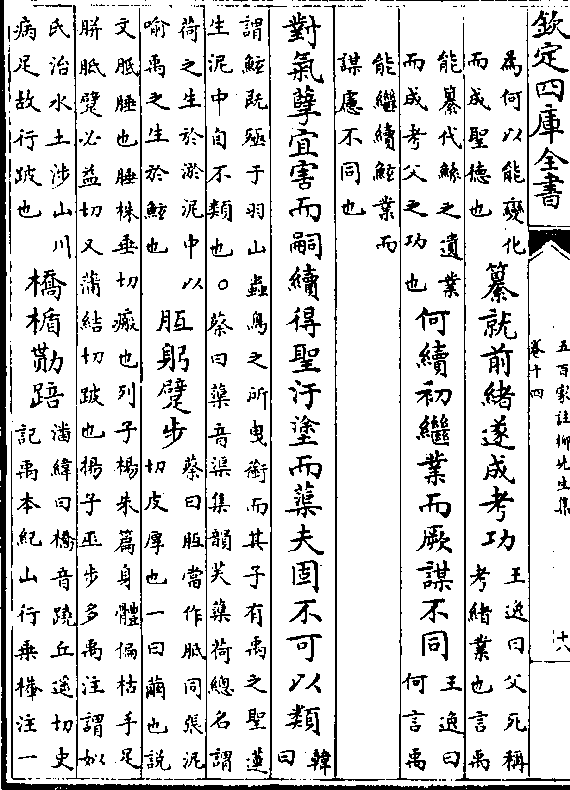 欽定四庫全書
五百家註柳先生集
卷十四
十六
為何以能變化
而成聖德也
纂就前緒遂成考功
王逸曰父死稱
考緒業也言禹
能纂代鯀之遺業
而成考父之功也
何續初繼業而厥謀不同
王逸曰
何言禹
能繼續鯀業而
謀慮不同也
對氣孽宜害而嗣續得聖汙塗而蕖夫固不可以類
韓
曰
謂鯀既殛于羽山蟲鳥之所曳銜而其子有禹之聖蓮
生泥中自不類也○蔡曰蕖音渠集韻芙蕖荷總名謂
荷之生於淤泥中以
喻禹之生於鯀也
胝躬躄步
蔡曰胝當作胝同張泥
切皮厚也一曰繭也說
文胝腄也腄株垂切瘢也列子楊朱篇身體偏枯手足
胼胝躄必益切又蒲結切跛也揚子巫步多禹注謂姒
氏治水土涉山川
病足故行跛也
橋楯勩踣
潘緯曰橋音蹺丘遥切史
記禹本紀山行乗檋注一